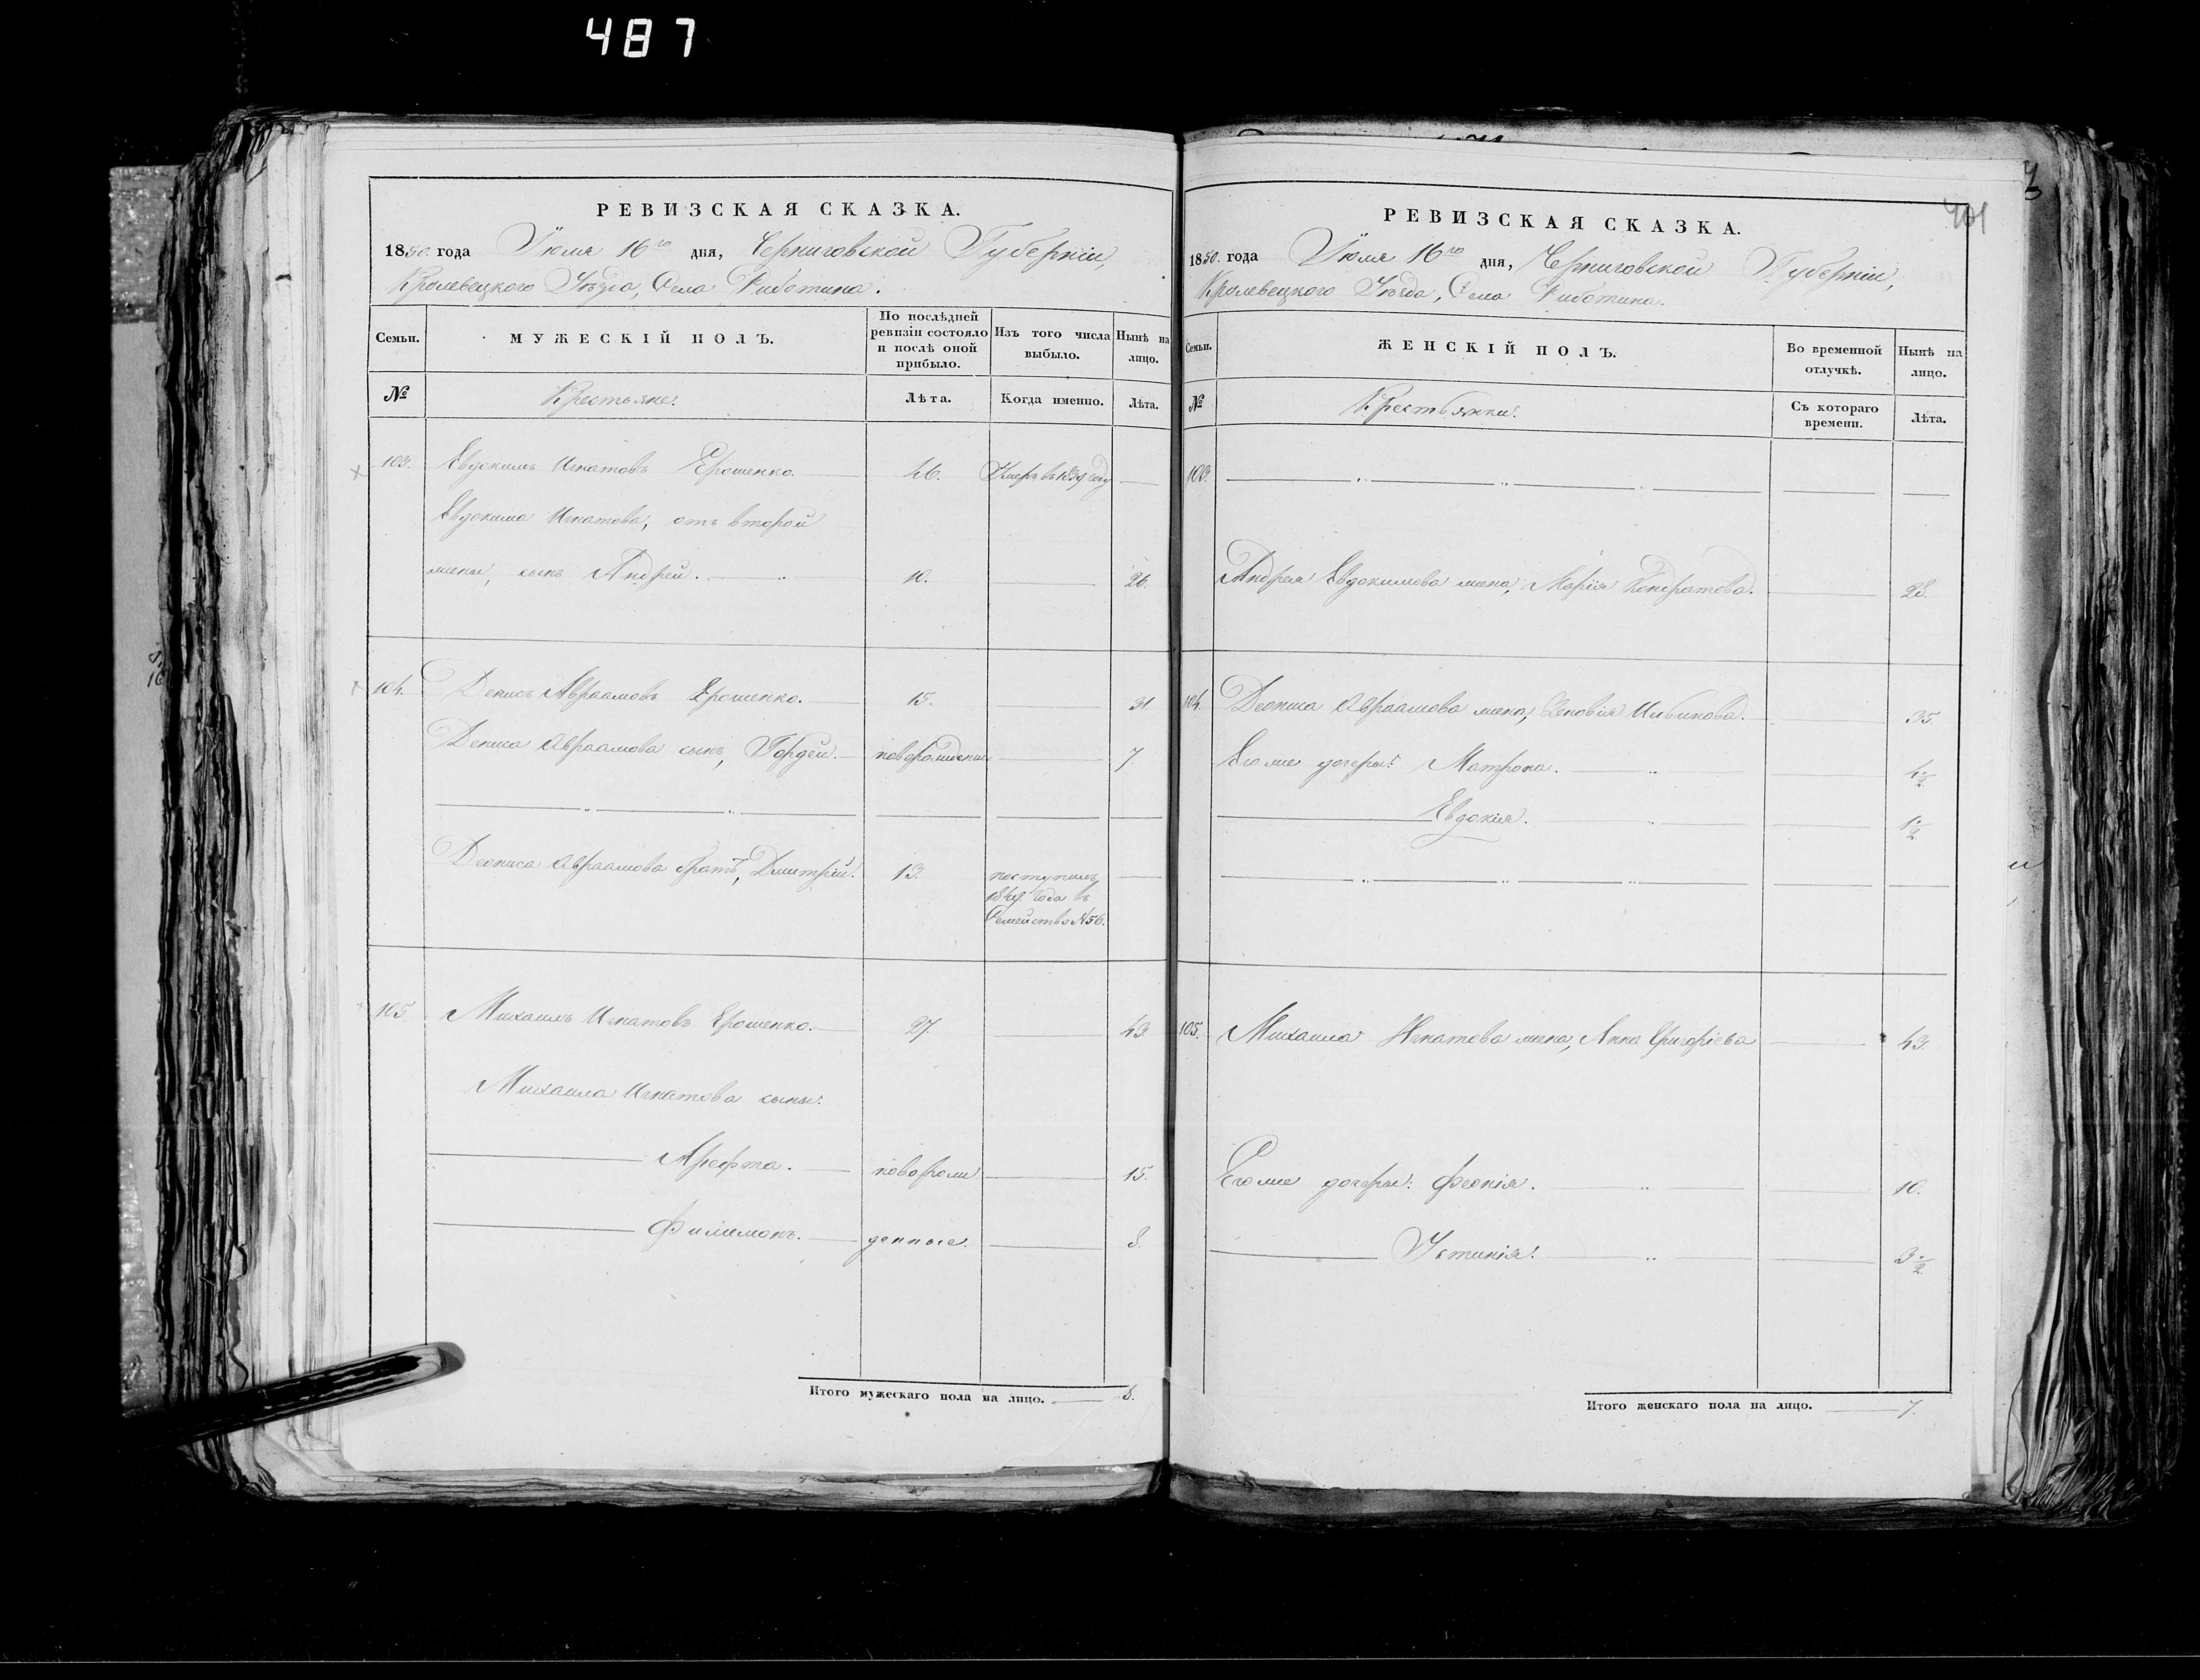 487
401
РЕВИЗСКАЯ СКАЗКА.
1850. года Іюля 16го дня, Черниговской Губерніи,
Кролевецкого Уѣзда, Села Риботина.
Семьи.
МУЖЕСКІЙ ПОЛЪ.
По послѣдней ревизіи состояло и послѣ оной прибыло.
Изъ того числа выбыло.
Нынѣ на лицо.
№
Крестьяне.
Лѣта.
Когда именно.
Лѣта.
103. Евдокимъ Игнатовъ Ерошенко. 46. Умеръ въ 1839 году
Евдокима Игнатова, отъ второй
жены, сынъ Андрей. 10. 26.
104. Денисъ Авраамовъ Ерошенко. 15. 31
Дениса Авраамова сынъ, Гордей. новорожденный 7
Дениса Авраамова братъ, Дмитрій. 13. поступилъ
1849. года въ
Семейство №56.
105 Михаилъ Игнатовъ Ерошенко. 27 43
Михаила Игнатова сыны:
Арефта. новорож 15.
Филимонъ. денные. 8.
Итого мужескаго пола на лицо. 6.
РЕВИЗСКАЯ СКАЗКА.
1850. года Іюля 16го дня, Черниговской Губерніи,
Кролевецкого Уѣзда, Села Риботина.
Семьи.
ЖЕНСКІЙ ПОЛЪ.
Во временной отлучкѣ.
Нынѣ на лицо.
№
Крестьянки.
Съ котораго времени.
Лѣта.
103.
Андрея Евдокимова жена, Марія Кондратова. 28.
104. Дениса Авраамова жена, Зеновія 35.
Его же дочери: Матрона. 4 1/2
Евдокія. 1 1/2
105. Михаила Игнатова жена, Анна Григорієва 43.
Его же дочери: Феонія. 10.
Устинія. 3 1/2
Итого женскаго пола на лицо. 7.